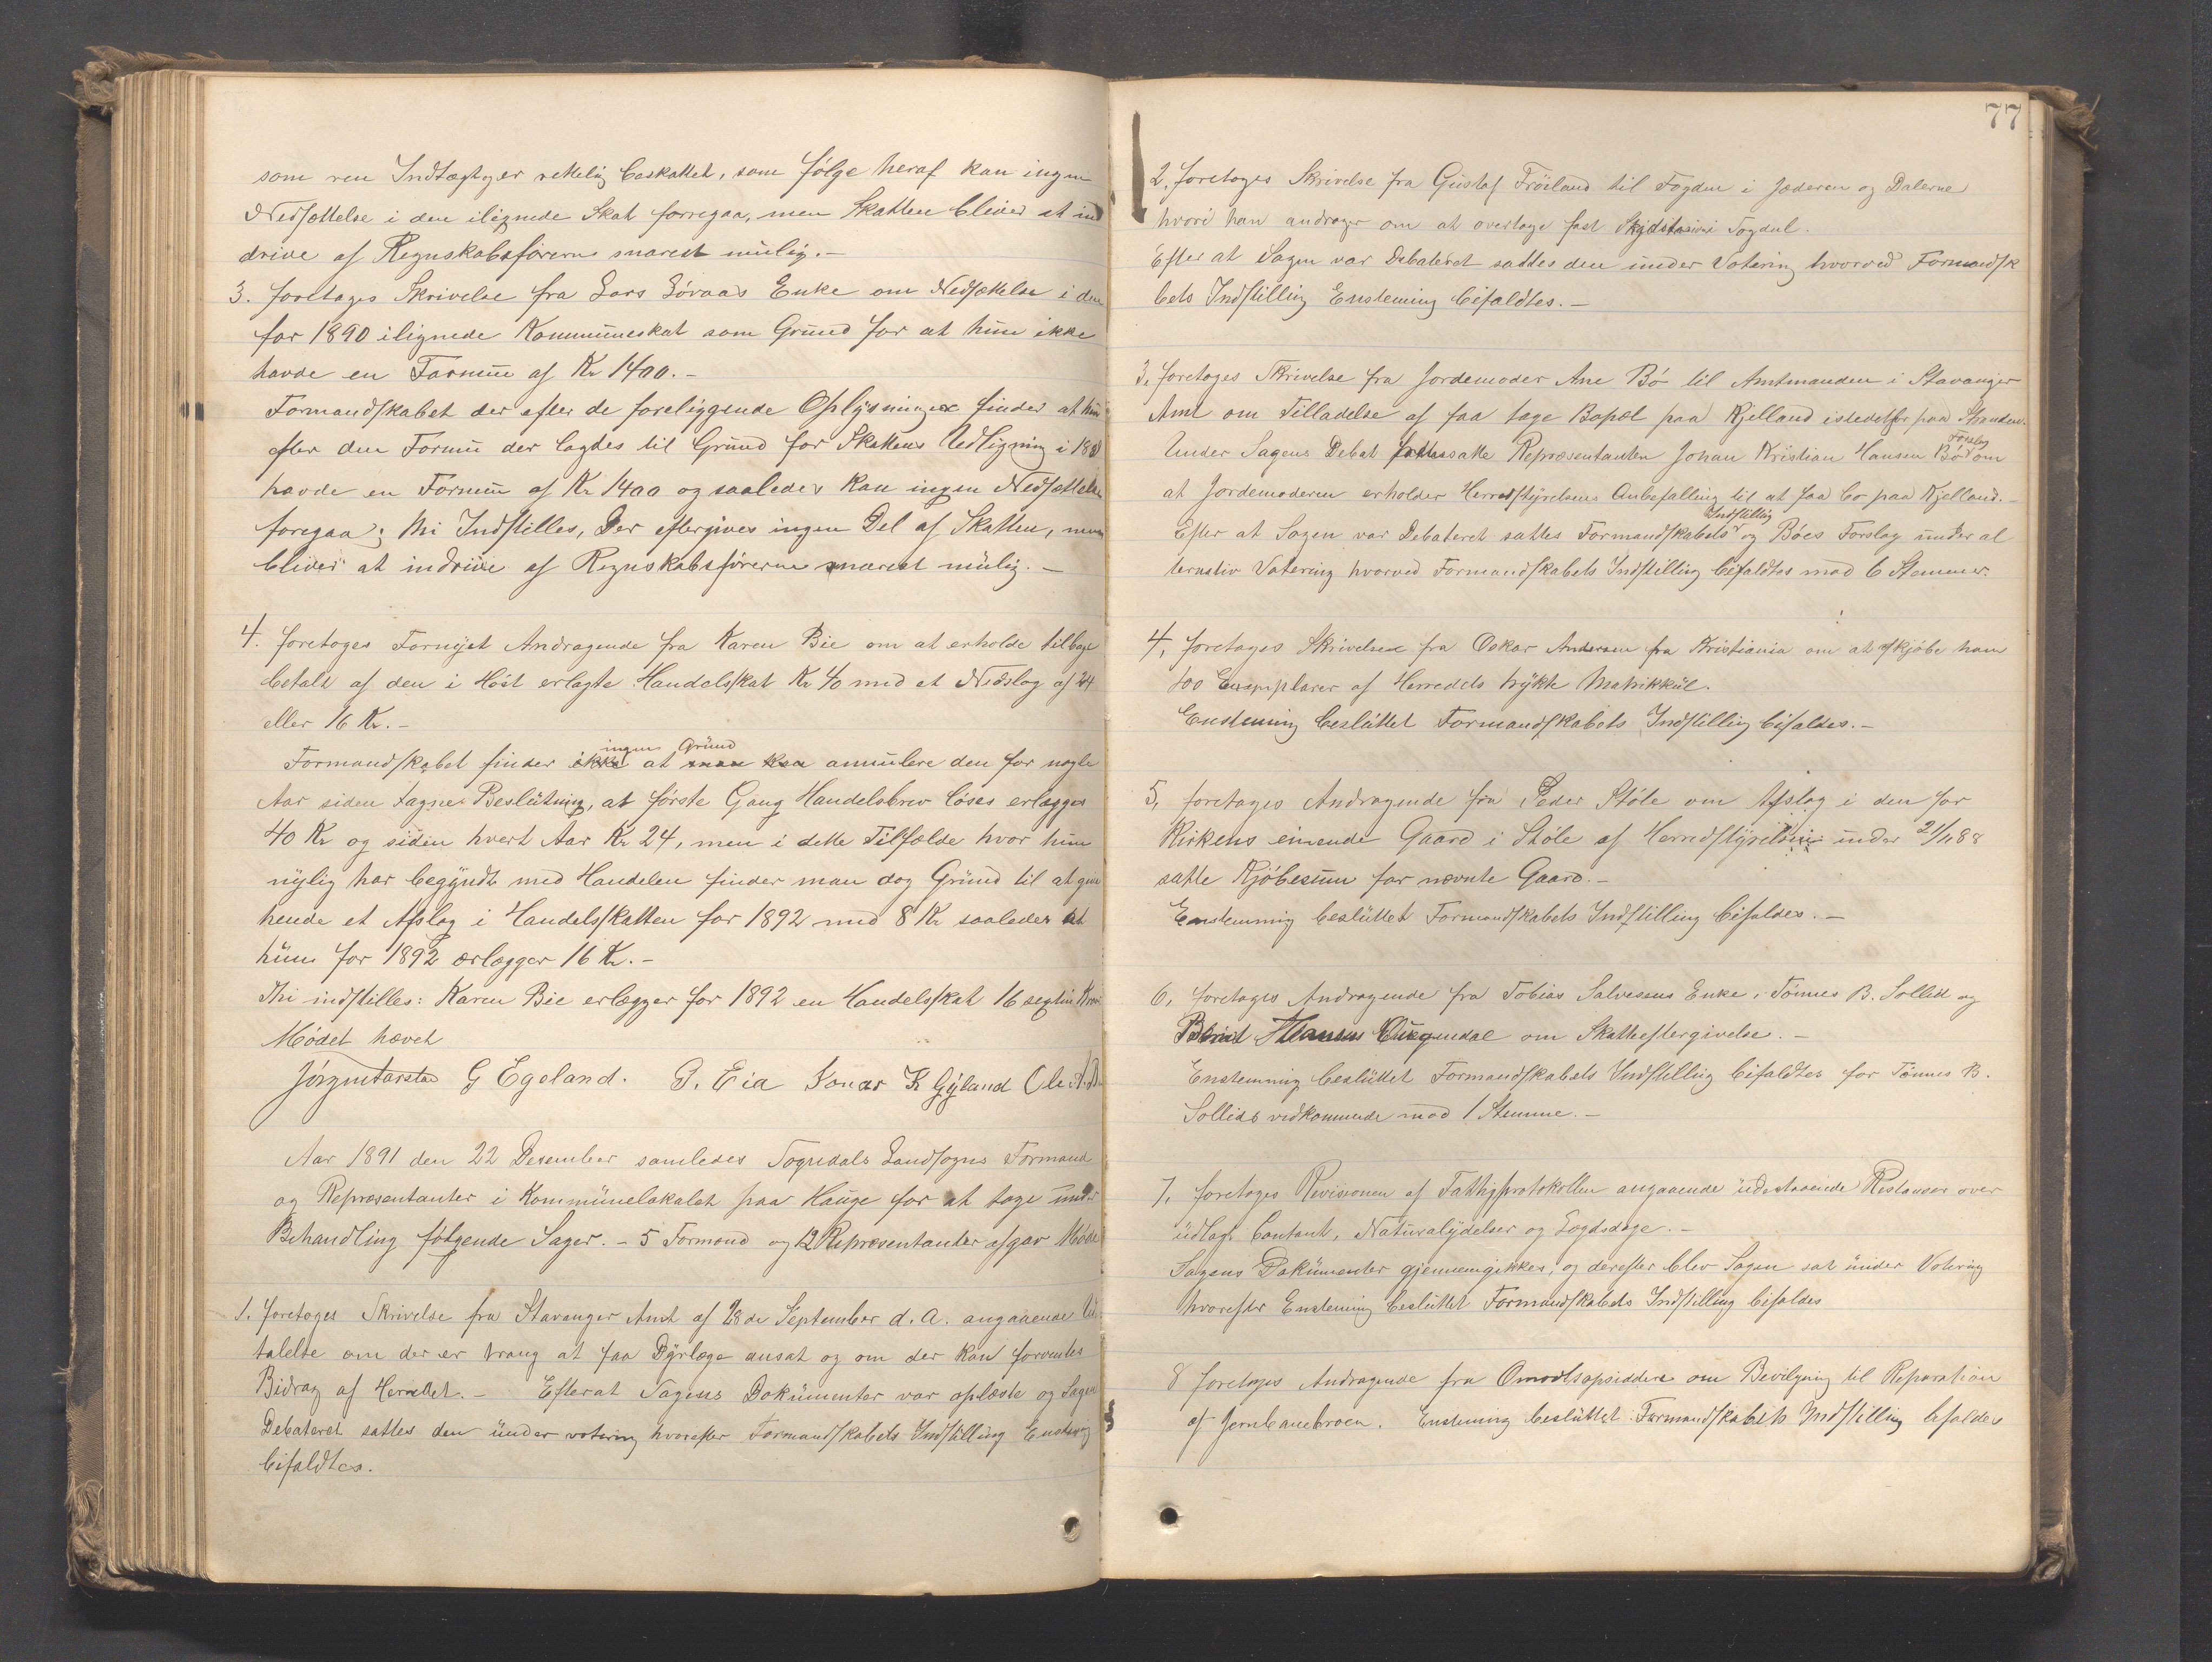 som ren Indtægt er rettelig beskattet, som følge heraf kan ingen
Nedsættelse i den ilignede Skat forregaa, men Skatten bliver at ind
drive af Regnskabsføreren snarest mulig.-
3. foretages Skrivelse fra Lars Løvaas Enke om Nedsættelse i den
for 1890 ilignede Kommuneskat som Grund for at hun ikke
havde en Formue af Kr 1400.-
Formandskabet der efter de foreliggende Oplysninger finder at hun
efter den Formue der lagdes til Grund for Skattens Udligning i
havde en Formue af Kr 1400 og saaledes kan ingen Nedsættelse
foregaa; thi Indstilles, Der eftergives ingen Del af Skatten, men
bliver at indrive af Regnskabsføreren snarest mulig.-
4. foretoges Fornyet Andragende fra Karen Bie om at erholde tilbage
betalt af den i Høst erlagte Handelsskat Kr 40 med et Nedslag af 24
eller 16 Kr.-
Formandskabet finder ikke ingen Grund at man kan annulere den for nogle
Aar siden tagne Beslutning, at første Gang Handelsbrev løses erlægges
40 Kr og siden hvert Aar Kr 24, men i dette Tilfælde hvor hun
nylig har begyndt med Handelen finder man dog Grund til at give
hende et Afslag i Handelsskatten for 1892 med 8 Kr saaledes at
hun for 1892 erlægger 16 Kr.-
Thi indstilles: Karen Bie erlægger for 1892 en Handelsskat 16 sexten Kroner
Mødet hævet
G Egeland. P. Eia Jonas K Gyland Ole
Aar 1891 den 22 Desember samledes Sogndals Landsogns Formand
og Repræsentanter i Kommunelokalet paa Hauge for at tage under
Behandling følgende Sager.- 5 Formænd og 12 Repræsentanter afgav Møde
1. foretoges Skrivelse fra Stavanger Amt af 28de September d.A. angaaende Ud
talelse om der er trang at faa Dyrlæge ansat og om der kan forventes
Bidrag af Herredet.- Efterat Sagens Dokumenter var oplæste og Sagen
Debateret sattes den under votering hvorefter Formandskabets Indstilling Enstemig
bifaldtes.
77
2, foretoges Skrivelse fra Gustaf Frøiland til Fogden i Jæderen og Dalerne
hvori han andrager om at overtage fast Skydsstation i Sogndal.
Efter at Sagen var Debateret sattes den under Votering hvorved Formandsk
bets Indstilling Enstemig bifaldtes.-
3, foretoges Skrivelse fra Jordemoder Ane Bø til Amtmanden i Stavanger
Amt om Tilladelse af faa tage Bopæl paa Kjelland istedetfor paa Stranden.
Under Sagens Debat satte Repræsentanten Johan Kristian Hansen Bø Forslag om
at Jordemoderen erholder Herredstyrelsens Anbefalling til at faa bo paa Kjelland.-
Efter at Sagen var Debateret sattes Formandskabets Indstilling og Bøes Forslag under al
ternativ Votering hvorved Formandskabets Indstilling bifaldtes mod 6 Stemmer.
4, foretoges Skrivelse fra Oskar Andersen fra Kristiania om at afkjøbe ham
100 Exemplarer af Herredets trykte Matrikkul.
Enstemig besluttet Formandskabets Indstilling bifaldes.-
5, foretoges Andragende fra Peder Støle om Afslag i den for
Kirkens eiende Gaard i Støle af Herredstyrelsen under 21/1 88
satte Kjøbesum for nævnte Gaard.-
Enstemmig besluttet Formandskabets Indstilling bifaldes.-
6, foretoges Andragende fra Tobias Salvesens Enke, Tønnes B. Sollid og
om Skatteeftergivelse.-
Enstemmig besluttet Formandskabets Indstilling bifaldtes for Tønnes B.
Sollids vedkommende mod 1 Stemme.-
7, foretoges Revisionen af Fattigprotokollen angaaende udestaaende Restanser over
udlagt Contant, Naturalydelser og Lægdsdage.-
Sagens Dokumenter gjennemgikkes, og derefter blev Sagen sat under Votering
hvorefter Enstemig besluttet Formandskabets Indstilling bifaldes
8 foretoges Andragende fra Omodtsopsiddere om Bevilgning til Reparation
af Jernbanebroen. Enstemig besluttet Formandskabets Indstilling bifaldes